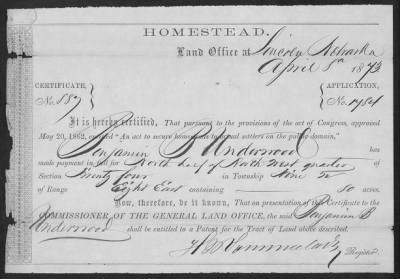 HOMESTEAD.
Land Office at Lincoln Nebraska
April 5th 1873
CERTIFICATE, APPLICATION,
No. 587 No.
It is hereby certified, That pursuant to the provisions of the act of Congress, approved
May 20, 1862, entitled "An act to secure homesteads to actual settlers on the public domain,"
Benjamin B Underwood has
made payment in full for North half of North West quarter of
Section Twenty four in Township Nine N
of Range Eight East containing 80 acres.
Now, therefore, be it known, That on presentation of this Certificate to the
COMMISSIONER OF THE GENERAL LAND OFFICE, the said Benjamin B
Underwood shall be entitled to a Patent for the Tract of Land above described.
Register.